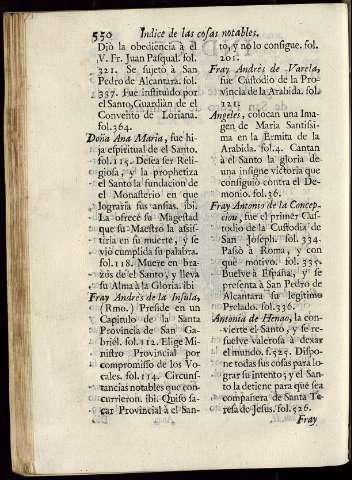 550 Indice de las cosas notables.
Diò la obediencia à el
V. Fr. Juan Pasqual. fol.
321. Se sujetò à San
Pedro de Alcantara. fol.
337. Fue instituido por
el Santo, Guardian de el
Convento de Loriana.
fol.364.
Doña Ana Maria, fue hi-
ja espiritual de el Santo.
fol.115. Desea ser Reli-
giosa, y la prophetiza
el Santo la fundacion de
el Monasterio en que
lograria sus ansias. ibi.
La ofrecè su Magestad
que su Maestro la assis-
tiria en su muerte, y se
viò cumplida su palabra.
fol.118. Muere en bra-
zos de el Santo, y lleva
su Alma à la Gloria. ibi
Fray Andrès de la Insula,
(Rmo.) Preside en un
Capitulo de la Santa
Provincia de San Ga-
briel. fol.112. Elige Mi-
nistro Provincial por
compromisso de los Vo-
cales. fol.114. Circuns-
tancias notables que con-
currieron. ibi. Quiso sa-
car Provincial à el San-
to, y no lo consigue. fol.
201.
Fray Andrès de Varela,
fue Custodio de la Pro-
vincia de la Arabida. fol.
221.
Angeles, colocan una Ima-
gen de Maria Santissi-
ma en la Ermita de la
Arabida. fol.4. Cantan
à el Santo la gloria de
una insigne victoria que
consiguiò contra el De-
monio. fol.36.
Fray Antonio de la Concep-
cion, fue el primer Cus-
todio de la Custodia de
San Joseph. fol.334.
Passò à Roma, y con
què motivo. fol.335.
Buelve à España, y se
presenta à San Pedro de
Alcantara su legitimo
Prelado. fol.336.
Antonia de Henao, la con-
vierte el Santo, y se re-
suelve valerosa à dexar
el mundo. f.525. Dispo-
ne todas sus cosas para lo-
grar su intento; y el San-
to la detiene para que sea
compañera de Santa Te-
resa de Jesus. fol.526.
Fray